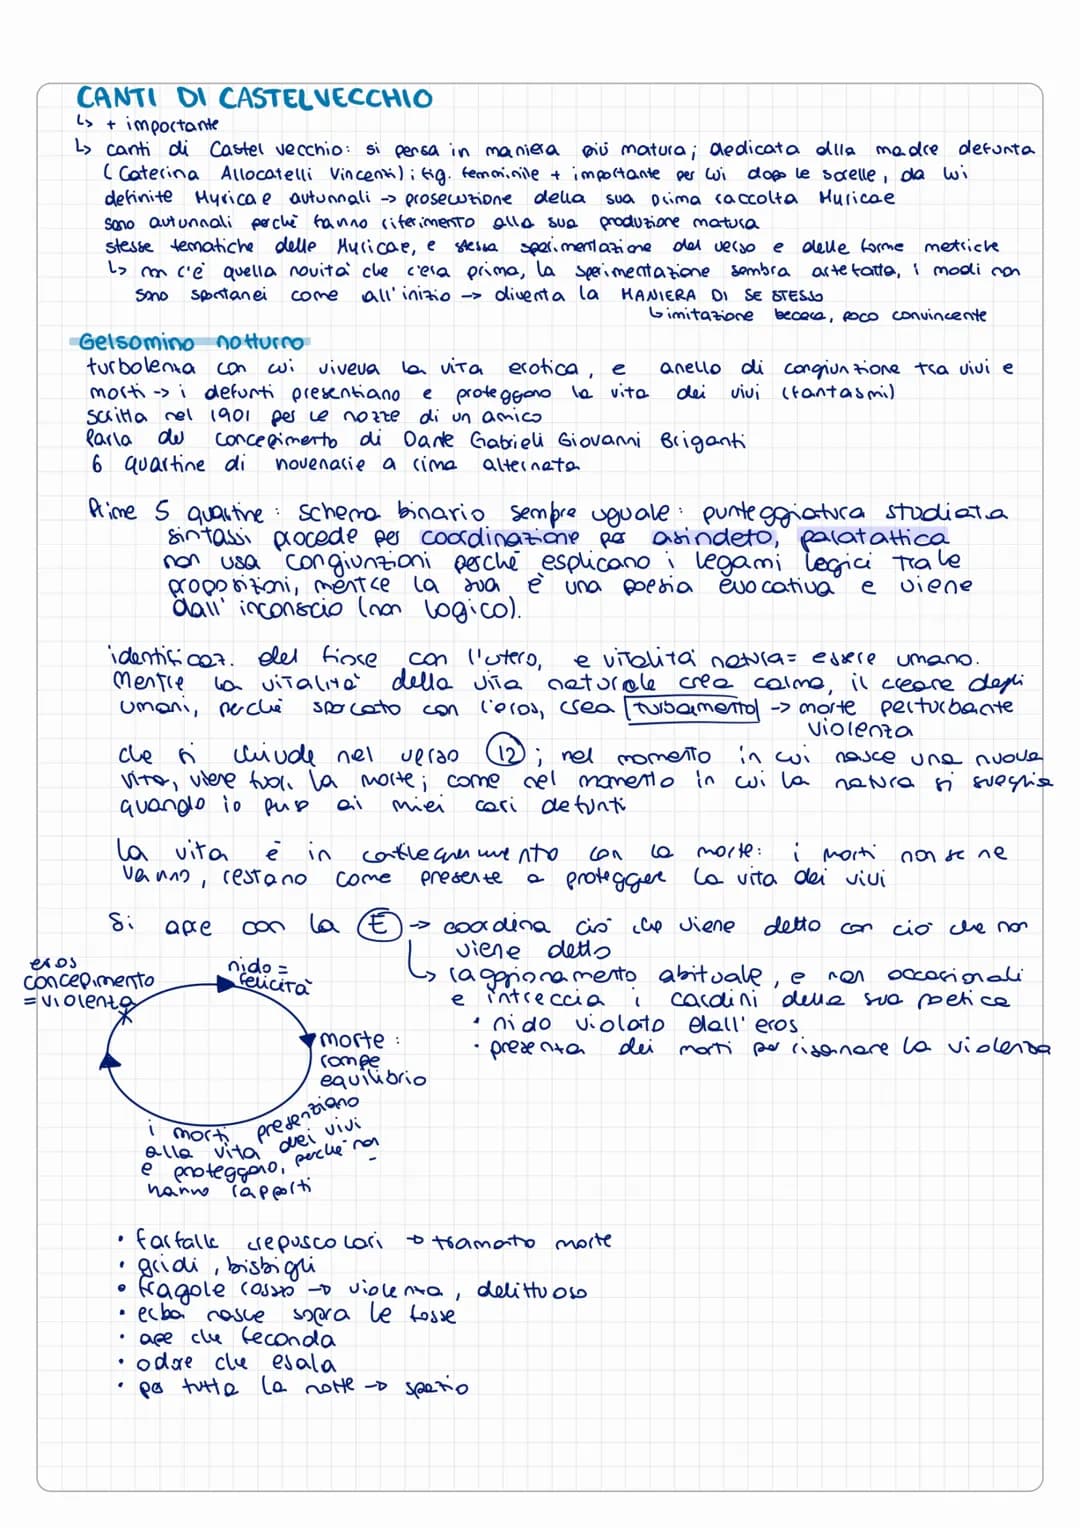 CANTI DI CASTELVECCHIO
↳ + importante
↳ canti di Castel vecchio: si pensa in maniera più matura; dedicata alla madre defunta
(Caterina Allocatelli Vincenti); fig. femminile + importante per lui dopo le sorelle, da lui
definite Myricae autunnali -> prosecuzione della sua prima raccolta Myricae
sono autunnali perché fanno riferimento alla sua produzione matura
stesse tematiche delle Myricae, e stessa sperimentazione del verso e delle forme metriche
↳ non c'è quella novità che c'era prima, la sperimentazione sembra artefatta, i modi non
sono spontanei come all'inizio -> diventa la MANIERA DI SE STESSO
↳ imitazione becera, poco convincente
Gelsomino notturno
turbolenza con cui viveva la vita erotica, e anello di congiunzione tra vivi e
morti -> i defunti presentiano e proteggono la vita dei vivi (fantasmi)
scritta nel 1901 per le nozze di un amico
Parla del concepimento di Dante Gabrieli Giovanni Briganti
6 quartine di novenarie a rima alternata
Prime 5 quartine: schema binario sempre uguale: punteggiatura studiata
sintassi procede per coordinazione per asindeto, paratattica
non usa congiunzioni perché esplicano i legami logici tra le
proposizioni, mentre la sua è una poesia evocativa e viene
dall'inconscio (non logico).
identificaz. del fiore con l'utero, e vitalità natura = essere umano.
Mentre la vitalità della vita naturale crea calma, il creare degli
umani, perché sporcato con l'eros, crea turbamento -> morte perturbante
violenza
che si chiude nel verso 12; nel momento in cui nasce una nuova
vita, viene fuori la morte; come nel momento in cui la natura si sveglia
quando io penso ai miei cari defunti
la vita è in collegamento con la morte: i morti non se ne
vanno, restano come presente a proteggere la vita dei vivi
Si apre con la E -> coordina ciò che viene detto con ciò che non
viene detto
↳ ragionamento abituale, e non occasionali
e intreccia i cardini della sua poetica
• nido violato dall'eros
• presenza dei morti per risanare la violenza
eros
concepimento
= violenza
nido =
felicità
morte:
rompe
equilibrio
i morti presenziano
alla vita dei vivi
e proteggono, perché non
hanno rapporti
• farfalle crepuscolari -> tramonto morte
• gridi, bisbigli
• fragole rosso -> violenza, delittuoso
• erba nasce sopra le fosse
• ape che feconda
• odore che esala
• per tutta la notte -> spazio